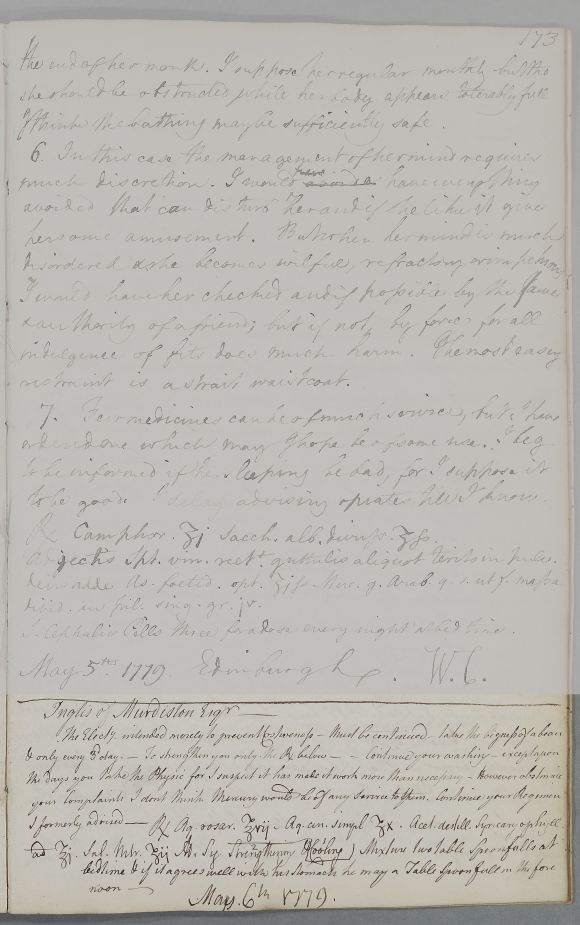 173
the end of her month. I suppose her regular monthly but tho
she should be obstructed while her body appears tolerably full
I think the bathing may be sufficiently safe.
6. In this case the management of her mind requires
much discretion. I would have avoided have every thing
avoided that can disturb her and if she like it gives
her some amusement. But when her mind is much
disordered & she becomes wilful, refractory or in passion
I would have her checked and if possible by the
& authority of a friend; but if not, by force for all
indulgence of fits does much harm. The most easy
restraint is a strait waistcoat.
7. Few medicines can be of much service, but I have
ordered one which may I hope be of some use. I beg
to be informed if her sleeping be bad, for I suppose it
to be good. I delay advising opiates till I know.
℞ Camphor. ʒj Sacch. alb. duriss. ʒſs.
adjectis Spt. vin. rect. guttulis aliquot teritis in pulv.
dein adde As. foetid. opt. ʒjſs Muc. g. Arab. q. s. ut f. massa
divid. in pil. sing. gr. jv.
S. Cephalic Pills three for a dose every night at bed time.
May 5th 1779. Edinburgh. W. C.
Inglis of Murdiston Esqr
The Elect.y intended merely to prevent costiveness - Must be continued - take the bigness of a bean
& only every 3d day. - To strengthen you only the ℞ below - - Continue your washing - except upon
the days you take the Physic for I suspect it has made it work more than necessary - However obstinate
your Complaints I dont think Mercury would be of any service to them. Continue your Regimen
I formerly advised - ℞ Aq. rosar. ʒvij Aq. cin. simpl ʒx. Acet. destill. Syr. caryophyll.
ad ʒj. Sal. Nitr. ʒij M. Sig. Strengthening (Cooling) Mixture two table Spoonfulls at
bedtime & if it agrees well with his stomach he may a Table Spoonfull in the fore
noon
May. 6th 1779.